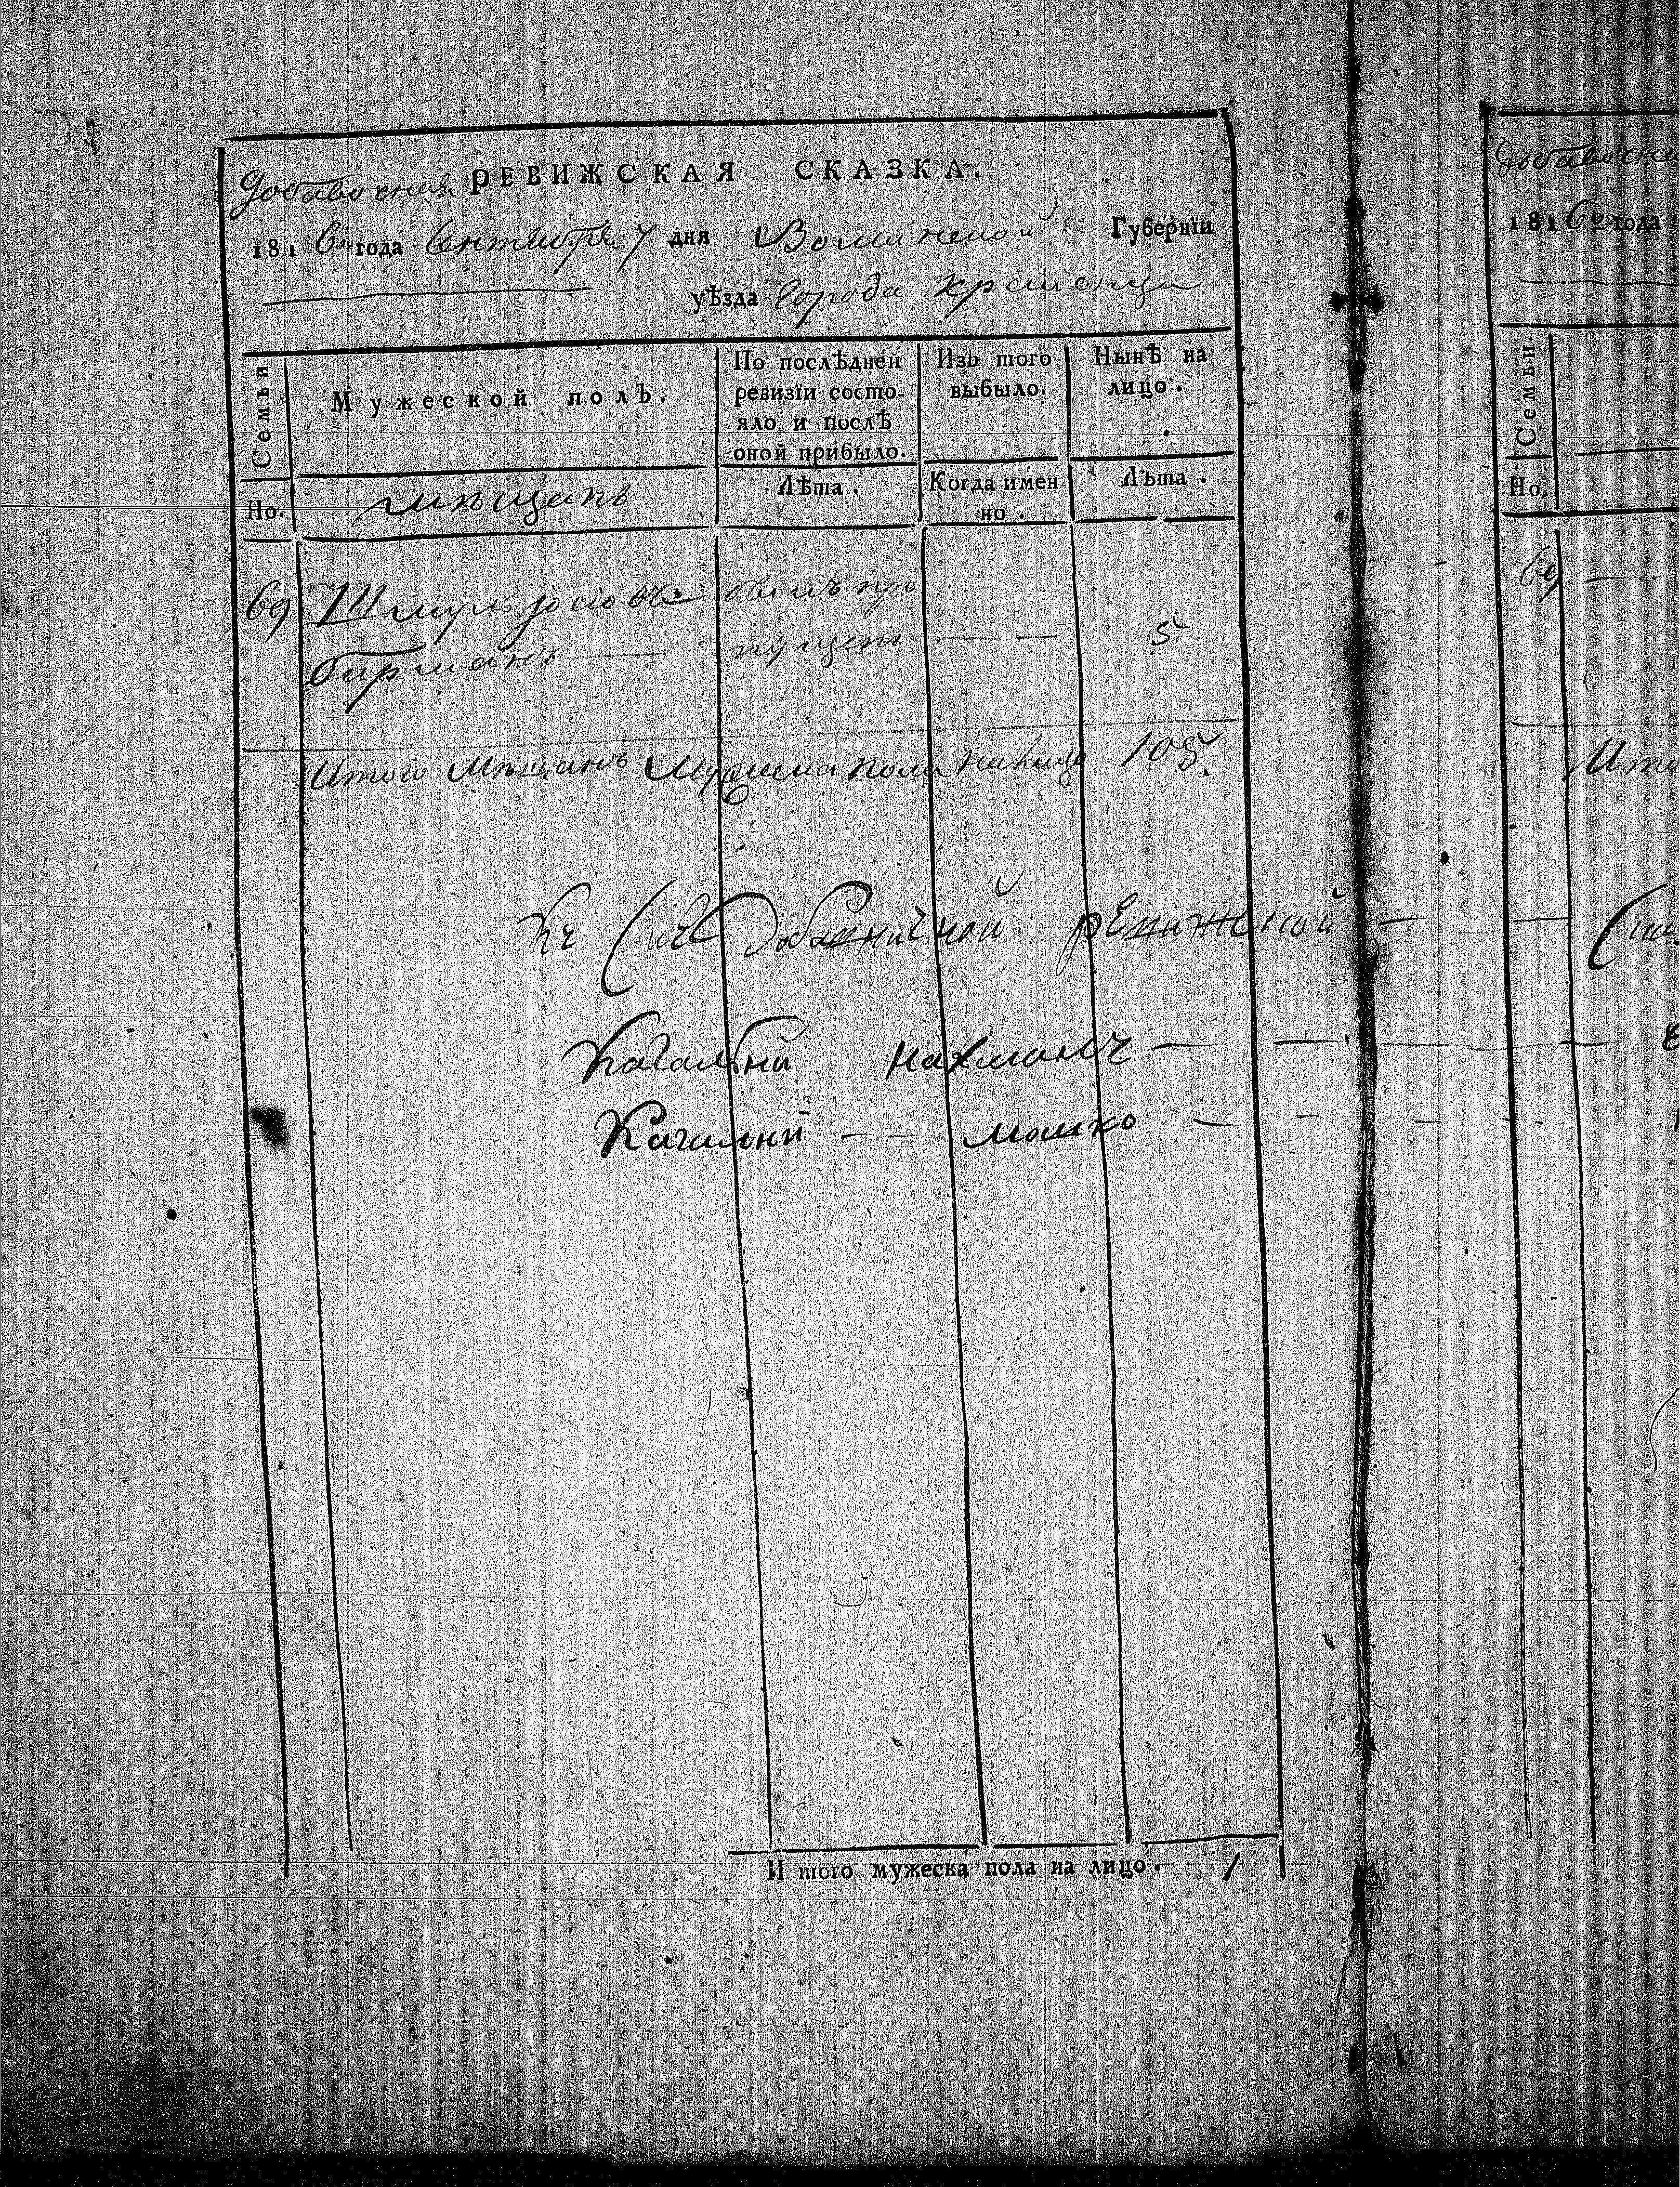 Добавочная РЕВИЖСКАЯ СКАЗКА.
1816го года Сентября 7 дня Волинской Губернїи
уѣзда Города Кременца
Семьи
Мужеской полъ.
По послѣдней ревизїи состо-
яло и послѣ оной прибыло.
Изъ того выбыло.
Нынѣ на лицо.
Но.
мѣщанъ
Лѣта.
Когда имен
но.
Лѣта.
69 Шмуль Іосіовъ былъ про
Бирманъ — пущенъ — — 5
Итого Мѣщанъ Мужеска пола налицо 105.
Къ Сей добавичной ревижской —
Кагалный Нахманъ —
Кагалный — — Мошко —
И того мужеска пола на лицо. 1
Добавочна
1816го года
Семьи.
Но.
69 —
Ито